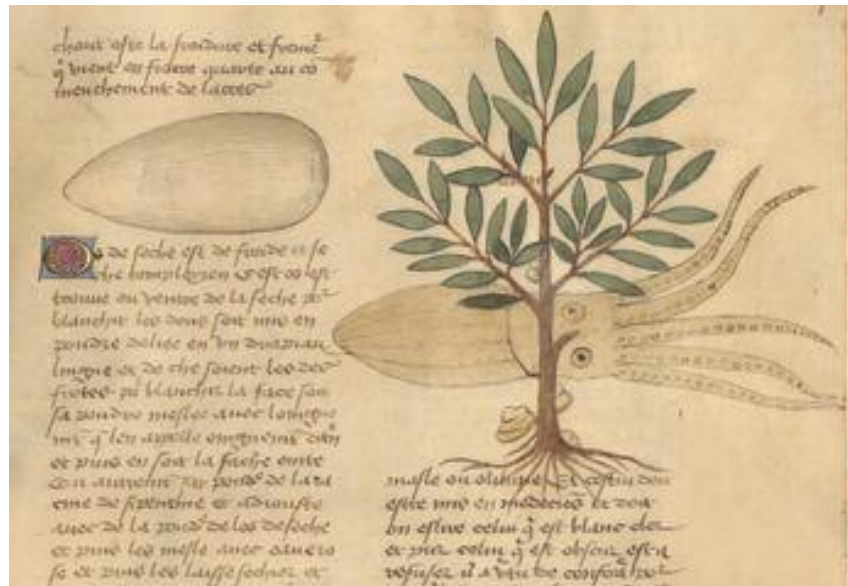 chaut oste la froidure et freme
q̃ vient en fievre quarte au co
menchement de lacces
Os de seche est de froide et se
che complexion Cest os est
trouve ou ventre de la seche po͛
blanchir les dens soit mis en
poudre deliee en un drapiau
linge et de che soient les des
frotes po͛ blanchir la face soit
sa poudre meslee avec
q̃ len appelle
et puis en soit la fache ointe
poud͛ de la ra
cine de serpentine et
avec de la poud͛ de los de seche
et puis les mesle avec eaue ro
se et puis les laisse secher et
masle ou olimpe Et cestui doit
estre mis en medecines et doit
on eslire celui q̃ est blanc cler
et pur celui q̃ est obscur est a
refuser il a v̾tu de conforter